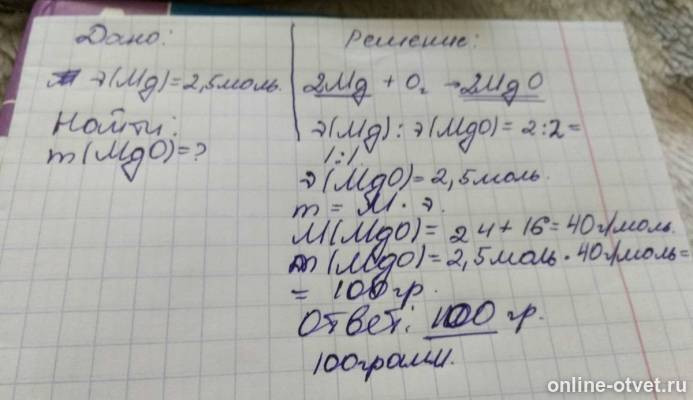 Дано:
ν(Mg)=2,5моль.
Найти:
m(MgO)=?
Решение:
2Mg + O₂ → 2MgO
ν(Mg):ν(MgO)=2:2=
1:1.
ν(MgO)=2,5моль.
m = M·ν.
M(MgO)=24+16=40г/моль.
m(MgO)=2,5моль·40г/моль=
= 100гр.
Ответ: 100 гр.
100грамм.
online-otvet.ru